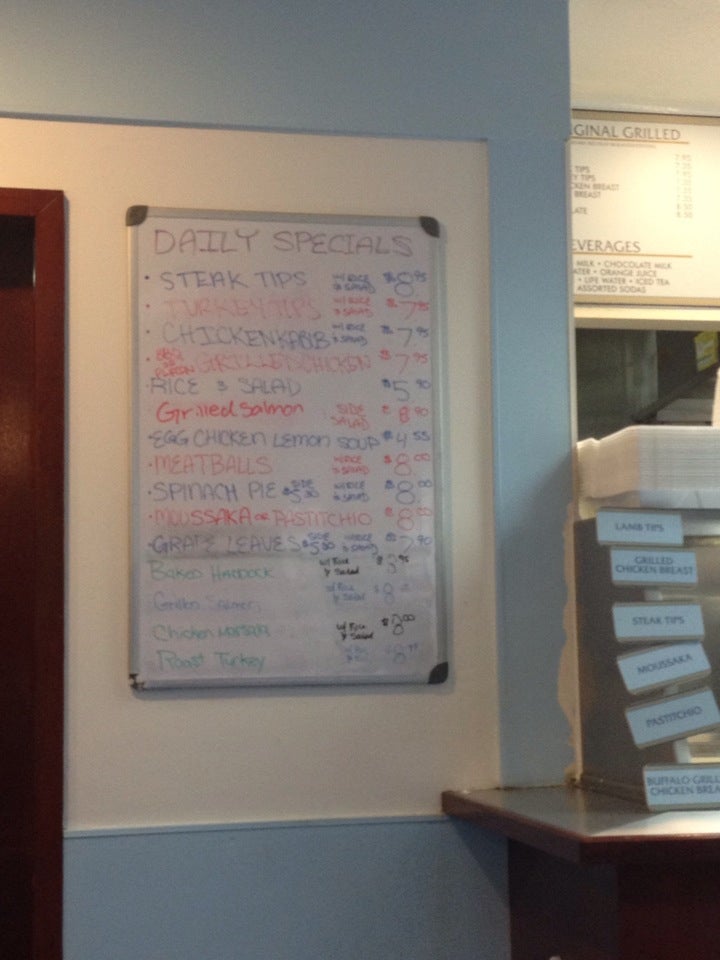 DAILY SPECIALS
• STEAK TIPS W/ RICE & SALAD $8.95
• TURKEY TIPS W/ RICE & SALAD $7.95
• CHICKEN KABOB W/ RICE & SALAD $7.95
• BBQ OR PLAIN GRILLED CHICKEN $7.95
• RICE & SALAD $5.90
Grilled Salmon SIDE SALAD 8.90
• EGG CHICKEN LEMON SOUP $4.55
• MEATBALLS W/ RICE & SALAD $8.00
• SPINACH PIE SIDE $5.50 W/ RICE & SALAD $8.00
• MOUSSAKA or PASTITCHIO $8.00
• GRAPE LEAVES SIDE W/ RICE & SALAD $7.90
Baked Haddock w/ Rice & Salad
Grilled Salmon w/ Rice & Salad $8
Chicken w/ Rice & Salad $8.00
Roast Turkey
IGINAL GRILLED
7.95
TIPS
Y TIPS
KEN BREAST
BREAST
LATE
EVERAGES
MILK • CHOCOLATE MILK
ATER • ORANGE JUICE
• LIFE WATER • ICED TEA
ASSORTED SODAS
LAMB TIPS
GRILLED
CHICKEN BREAST
STEAK TIPS
MOUSSAKA
PASTITCHIO
BUFFALO GRILL
CHICKEN BREA